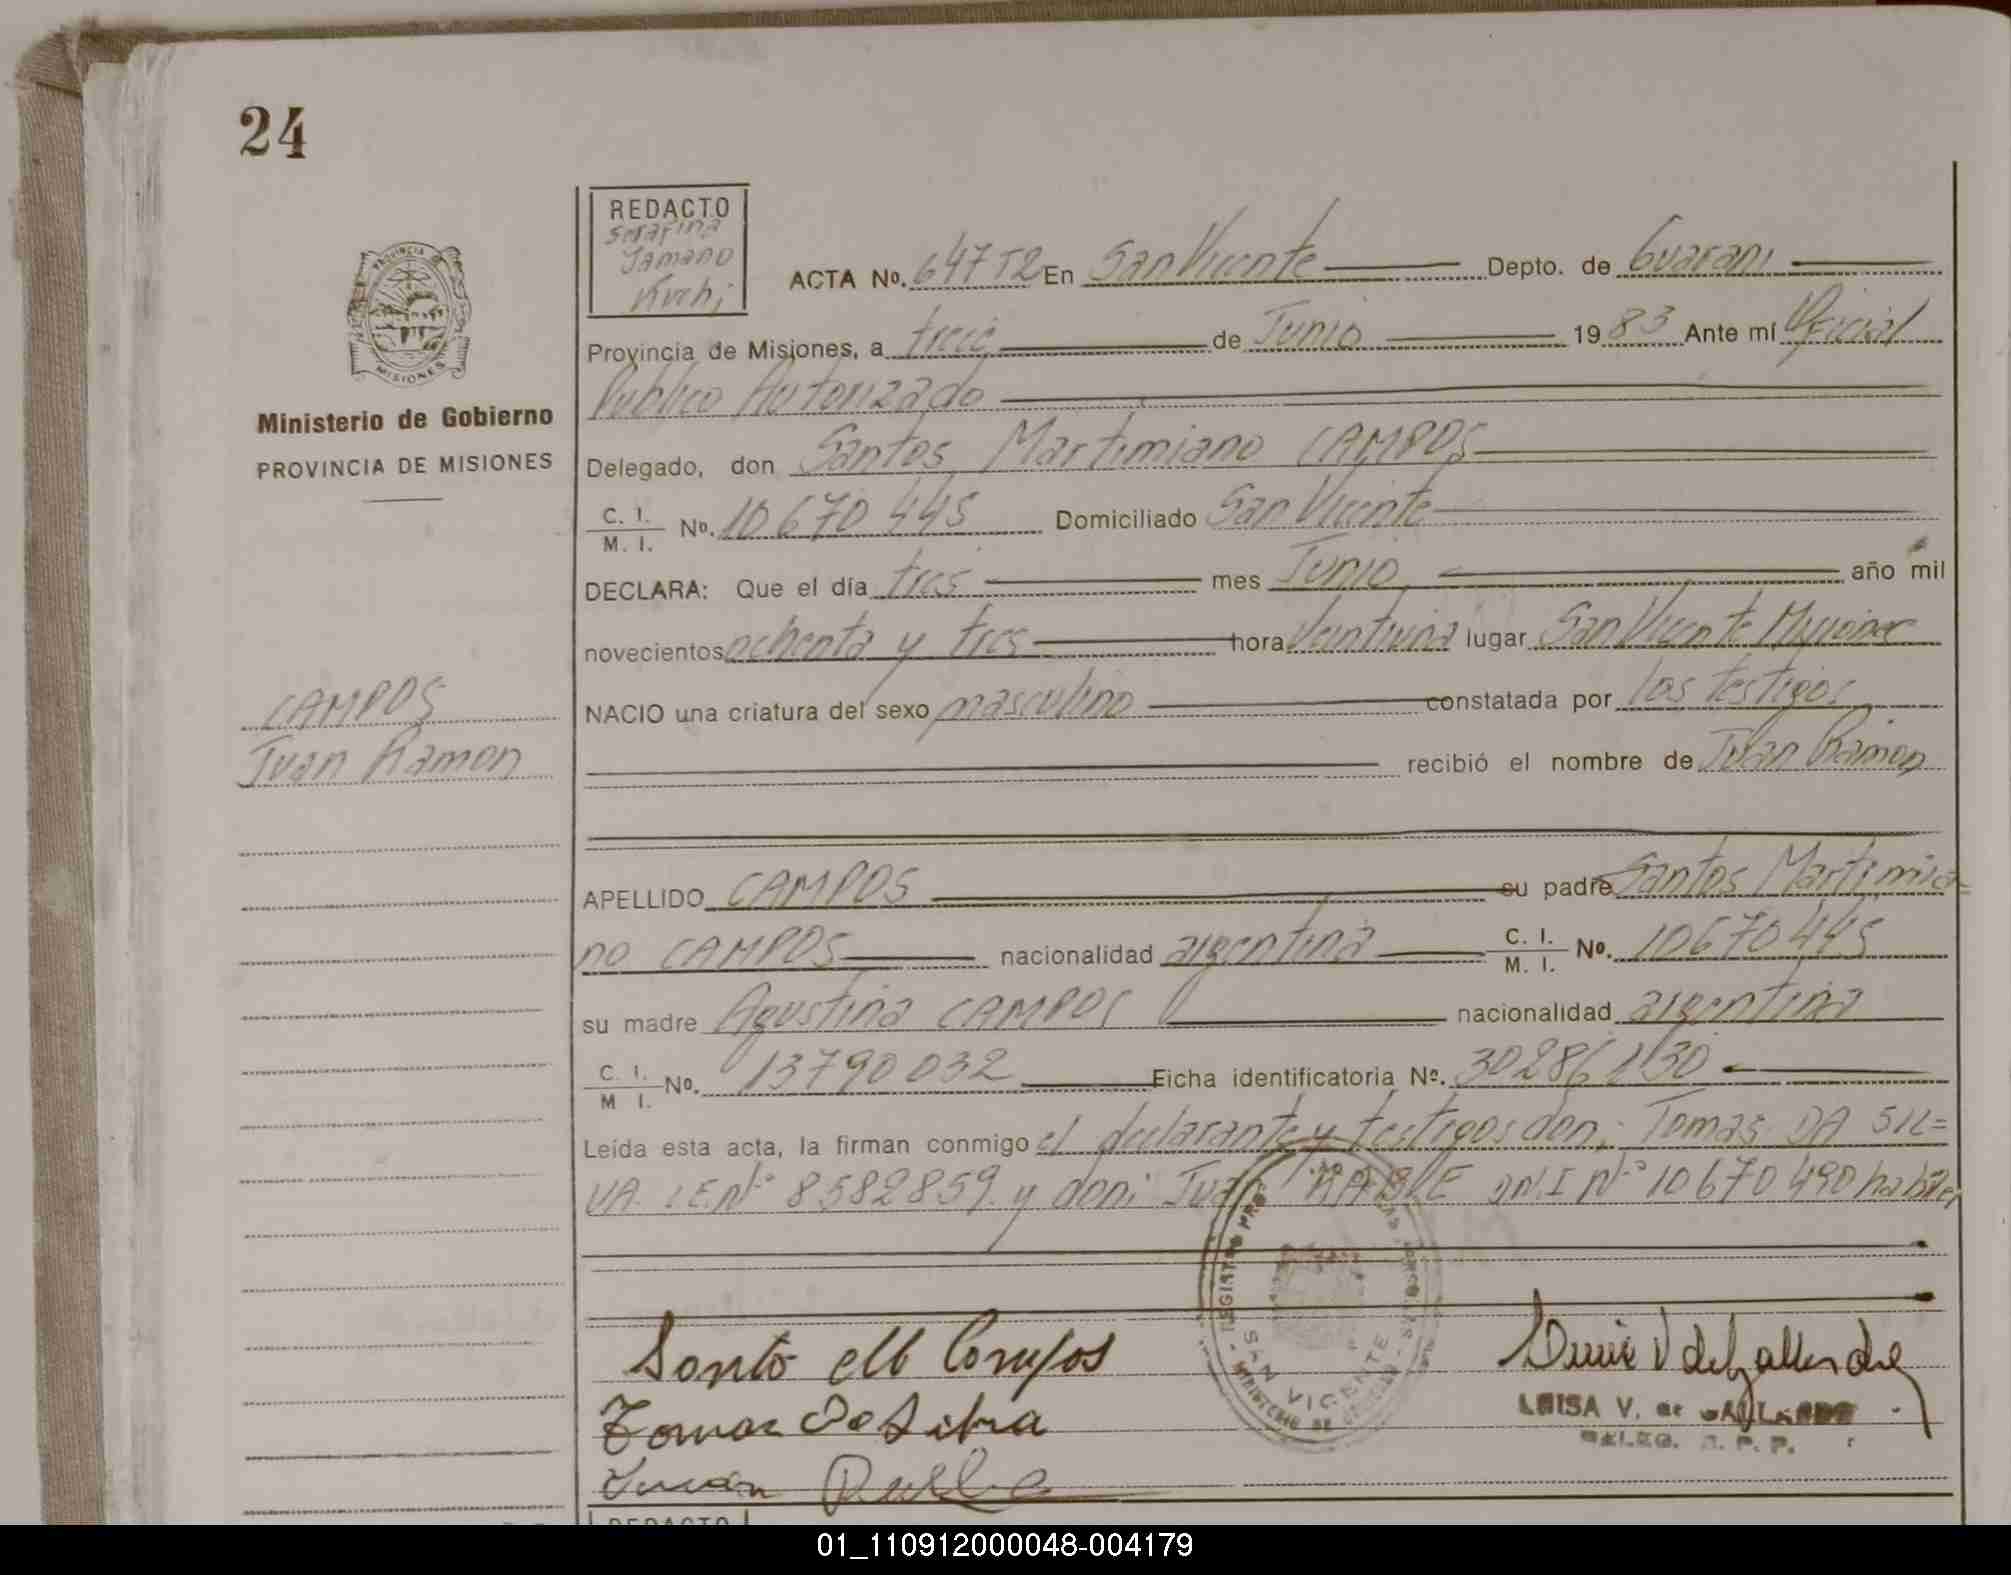 24
REDACTO
Serafina
Tamano
Kuchi
ACTA No. 647 T2 En San Vicente Depto. de Guarani
Provincia de Misiones, a trece de Junio 1983 Ante mí Oficial
Publico Autorizado
Ministerio de Gobierno
PROVINCIA DE MISIONES
PROVINCIA DE MISIONES
Delegado, don Santos Martimiano CAMPOS
C. I. / M. I. No. 10 670 445 Domiciliado San Vicente
DECLARA: Que el día tres mes Junio año mil
novecientos ochenta y tres hora veintiuna lugar San Vicente Misiones
CAMPOS
Juan Ramon
NACIO una criatura del sexo masculino constatada por los testigos
recibió el nombre de Juan Ramon
APELLIDO CAMPOS su padre Santos Martimia
no CAMPOS nacionalidad argentina C. I. / M. I. No. 10670445
su madre Agustina CAMPOS nacionalidad argentina
C. I. / M I. No. 13790032 Ficha identificatoria Nº. 30286130
Leída esta acta, la firman conmigo el declarante y testigos don: Tomas DA SIL=
VA. L.E.Nº 8582859 y don: Juan D.N.I Nº 10670490 habiles
SAN VICENTE
Santo M Campos
Tomas Da Silva
Juan
LUISA V. de GALLARDO
DELEG. R. P. P.
REDACTO
01_110912000048-004179